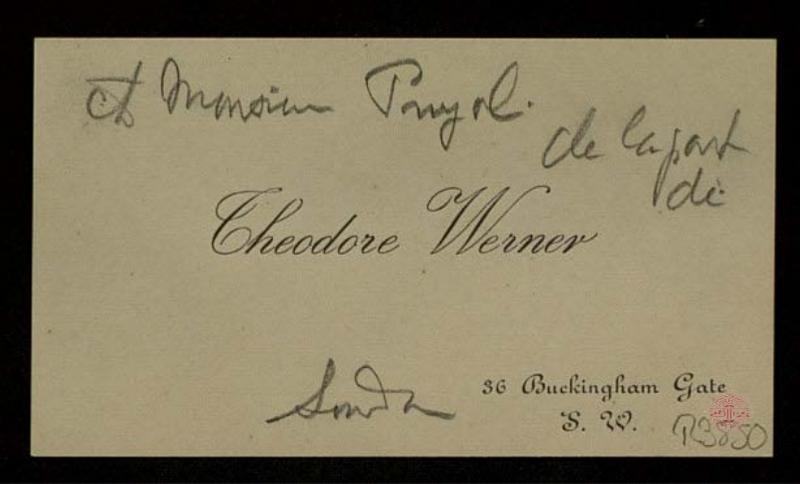 A Monsieur Pruyol.
de la part
de
Theodore Werner
London
36 Buckingham Gate
S. W.
R3850